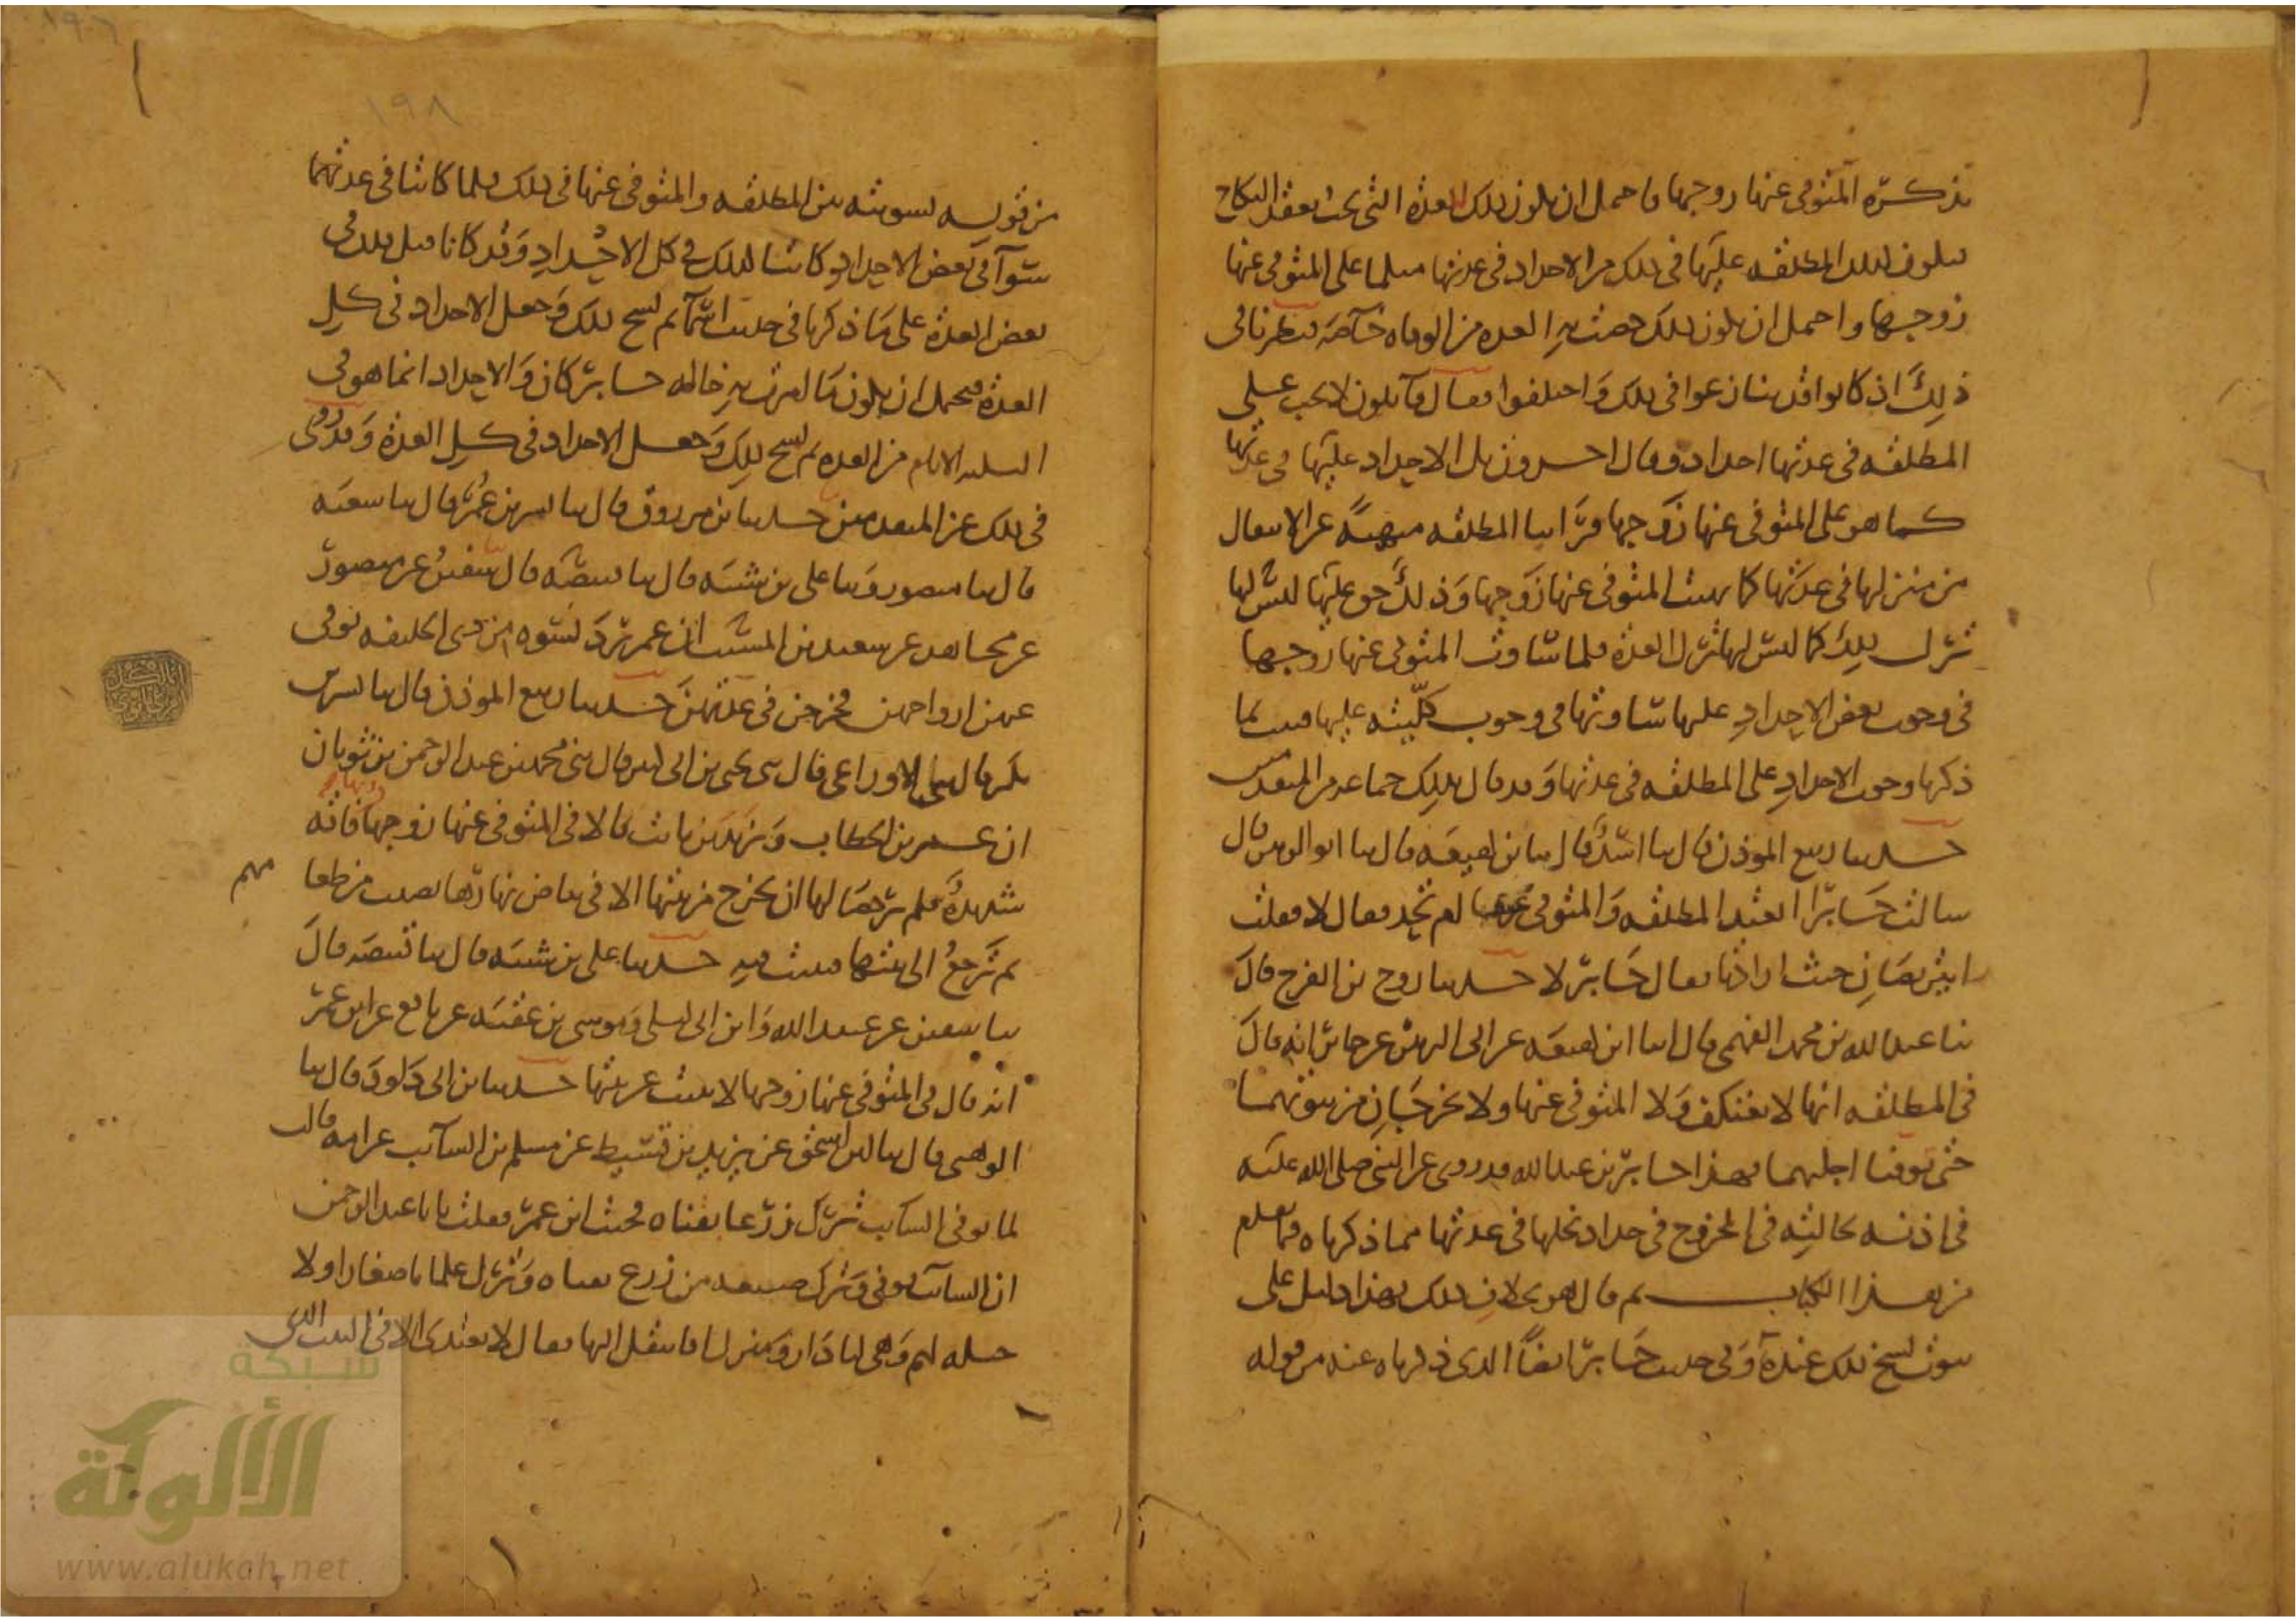 تذكره المتوفى عنها زوجها فاحتمل ان يكون ذلك العدة التي تجب بعقد النكاح
فيكون كذلك المطلقة عليها في ذلك من الاحداد في عدتها مثلما على المتوفى عنها
زوجها واحتمل ان يكون ذلك خصت به العدة من الوفاة خاصة فنظرنا في
ذلك اذ كانوا قد تنازعوا في ذلك واختلفوا فقال قايلون لا يجب على
المطلقة في عدتها احداد وقال اخرون بل الاحداد عليها في عدتها
كما هو على المتوفى عنها زوجها فراينا المطلقة منهية عن الانتقال
من منزلها في عدتها كما نهيت المتوفى عنها زوجها وذلك حق عليها ليس لها
تركه كذلك كما ليس لها ترك العدة فلما ساوت المتوفى عنها زوجها
في وجوب بعض الاحداد عليها ساوتها في وجوب كليته عليها فثبت بما
ذكرنا وجوب الاحداد على المطلقة في عدتها وقد قال بذلك جماعة من المتقدمين
حدثنا ربيع الموذن قال ثنا اسد قال ثنا بن لهيعة قال ثنا ابو الزبير قال
سالت جابرا اتعتد المطلقة والمتوفى عنها ام تحد فقال لا فقلت
اتتربصان حيث ارادتا فقال جابر لا حدثنا روح بن الفرج قال
ثنا عبد الله بن محمد الفهمي قال انا ابن لهيعة عن ابي الزبير عن جابر انه قال
في المطلقة انها لا تعتكف ولا المتوفى عنها ولا تخرجان من بيوتهما
حتى توفيا اجلهما فهذا جابر بن عبد الله قد روى عن النبي صلى الله عليه
في اذنه لخالته في الخروج في جداد نخلها في عدتها مما ذكرناه فيما تقدم
من هذا الكتاب ثم قال هو بخلاف ذلك فهذا دليل على
ثبوت نسخ ذلك عنده وفي حديث جابر ايضا الذي ذكرناه عنه من قوله
١٩٨
من قوله لسويته بين المطلقة والمتوفى عنها في ذلك فلما كانتا في عدتهما
سوآ في بعض الاحداد كانتا كذلك في كل الاحداد وقد كانا قبل ذلك في
بعض العدة على ما ذكرنا في حديث اسمآ ثم نسخ ذلك وجعل الاحداد في كل
العدة فيحتمل ان يكون ما امرت به خالة جابر كان والاحداد انما هو في
الثلثة الايام من العدة ثم نسخ ذلك وجعل الاحداد في كل العدة وقد روى
في ذلك عن المتقدمين حدثنا بن مرزوق قال ثنا بشر بن عمر قال ثنا شعبة
قال ثنا منصور وثنا علي بن شيبه قال ثنا قبيصة قال ثنا سفين عن منصور
عن مجاهد عن سعيد بن المسيب ان عمر رد نسوة من ذي الحليفة توفى
عنهن ازواجهن فخرجن في عدتهن حدثنا ربيع الموذن قال ثنا بشر بن
بكر قال ثنا الاوزاعي قال ثني يحيى بن ابي كثير قال ثني محمد بن عبد الرحمن بن ثوبان
ان عمر بن الخطاب وزيد بن ثابت قالا في المتوفى عنها زوجها وبها فاقه
شديدة فلم يرخصا لها ان تخرج من بيتها الا في بياض نهارها تصيب من طعامهم
ثم ترجع الى بيتها فتبيت فيه حدثنا علي بن شيبه قال ثنا قبيصة قال
ثنا سفين عن عبيد الله وابن ابي ليلى وموسى بن عقبة عن نافع عن ابن عمر
انه قال في المتوفى عنها زوجها لا تبيت عن بيتها حدثنا بن ابي داود قال ثنا
الوهبي قال ثنا ابن اسحق عن يزيد بن قسيط عن مسلم بن السائب عن امه قالت
لما توفى السائب ترك زرعا بقناة فجيت ابن عمر فقلت يا با عبد الرحمن
ان السائب توفى وترك ضيعة من زرع بقناة وترك غلمانا صغارا ولا
حيلة لهم وهي لنا دار ومنزل افانتقل اليها فقال لا تعتدي الا في البيت الذي
شبكة
الألوكة
www.alukah.net